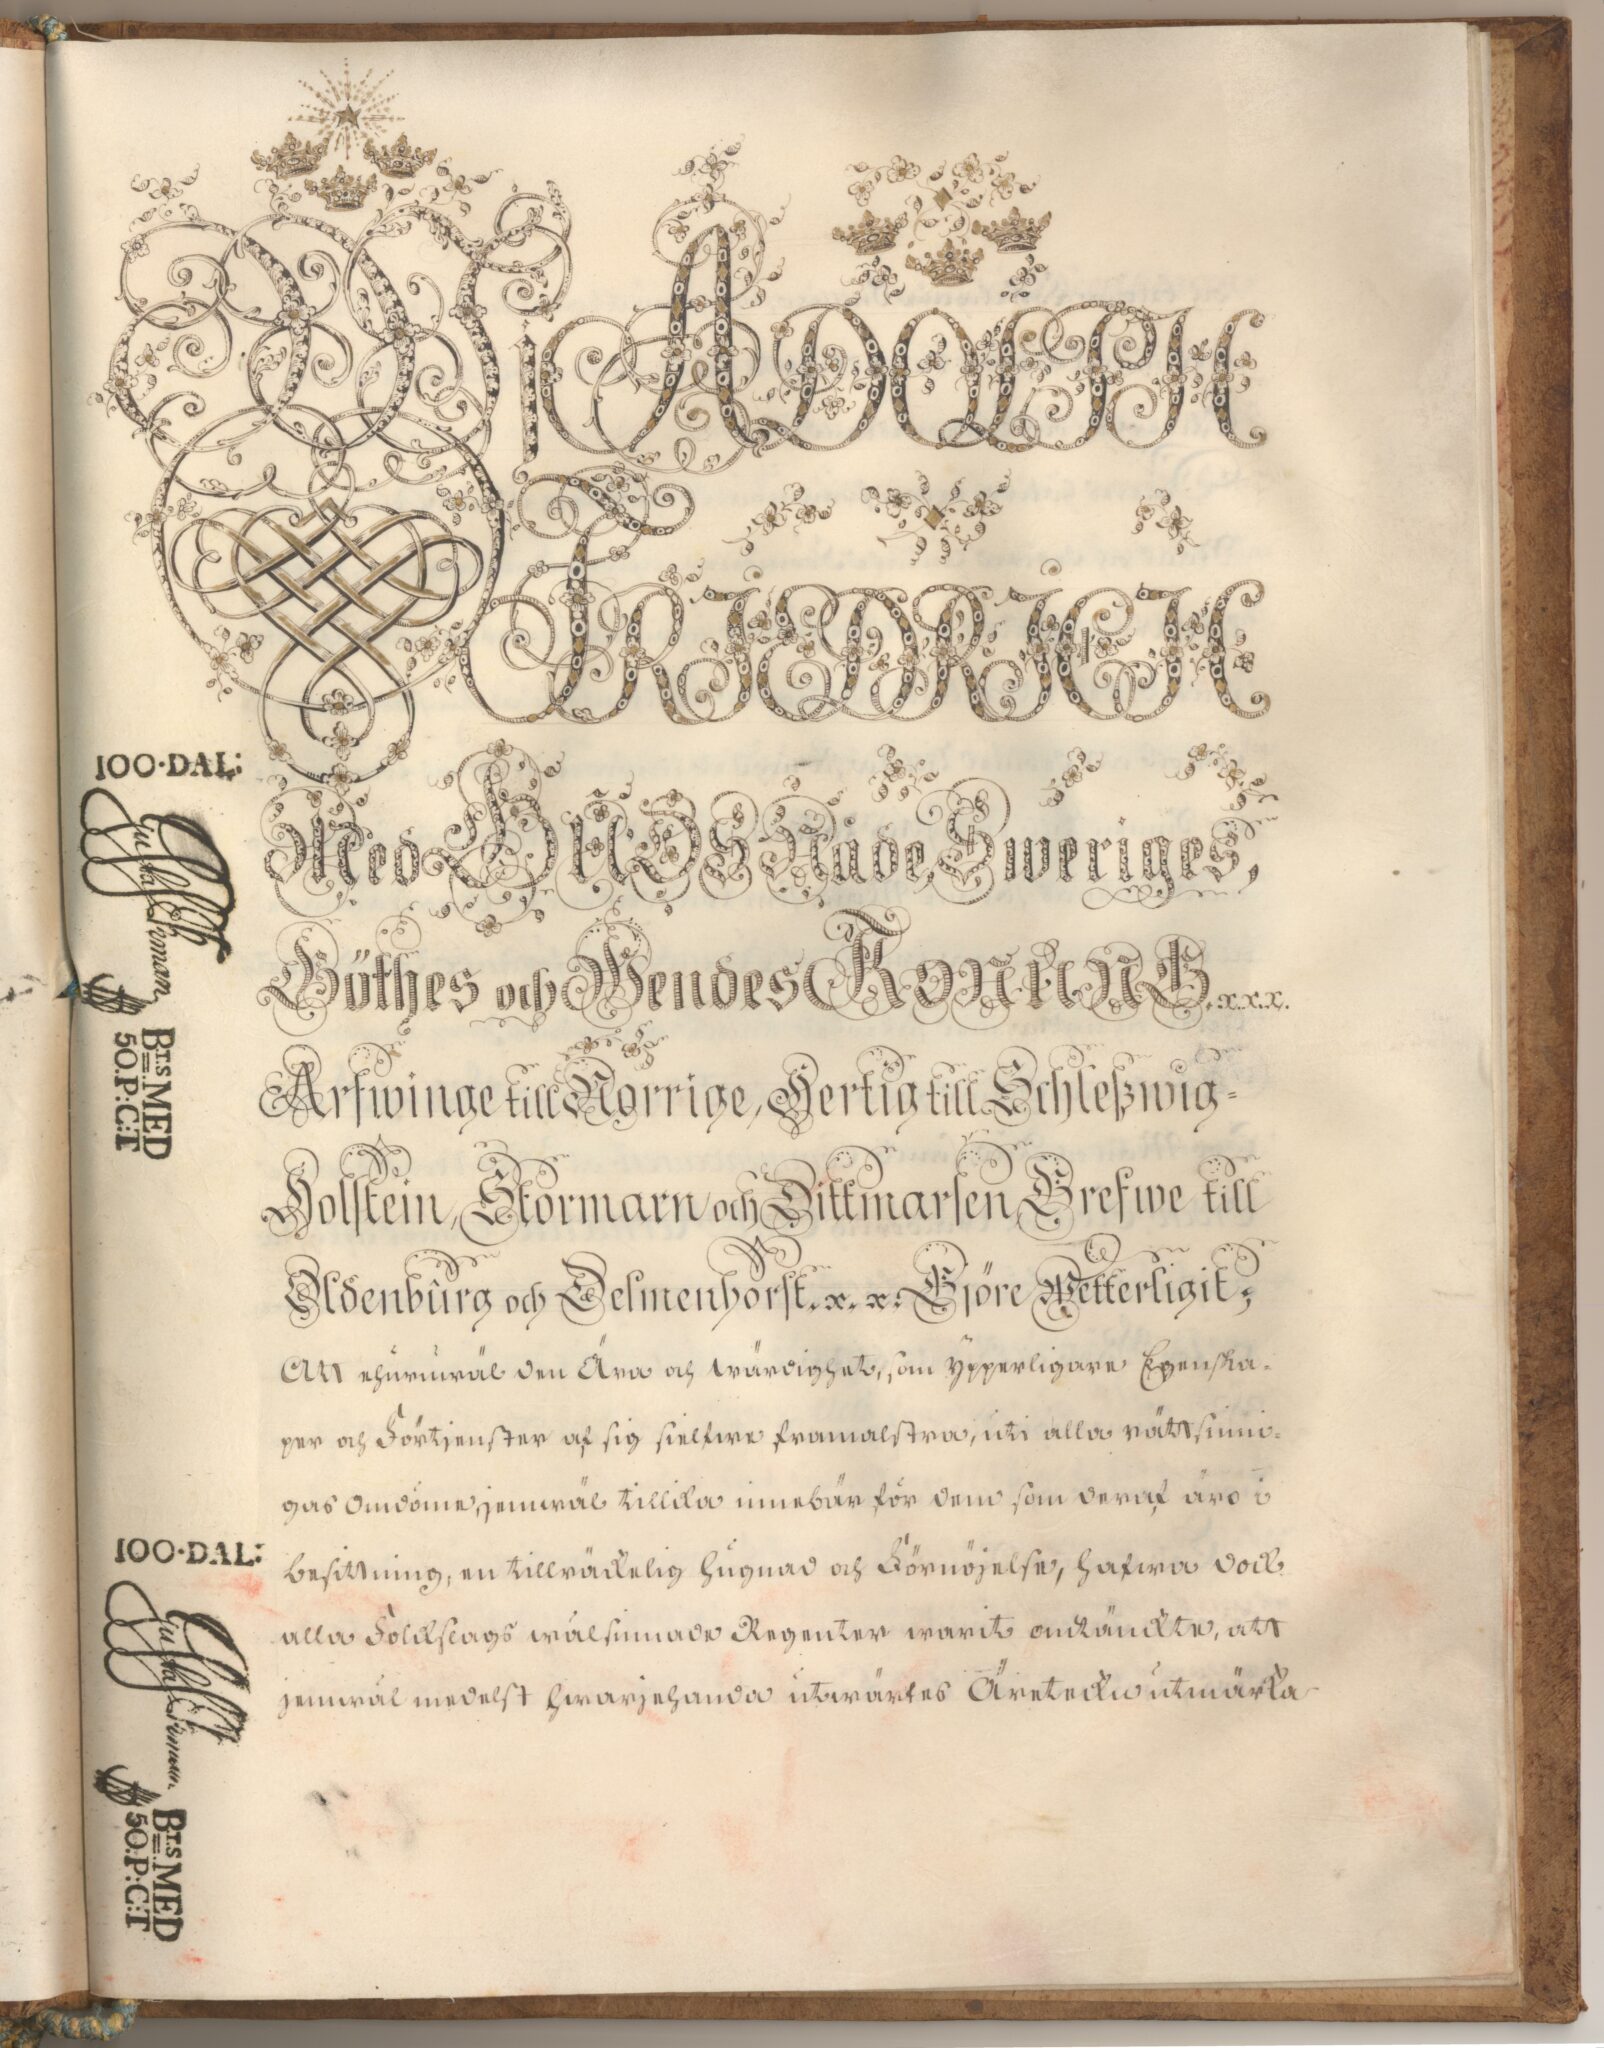 Wi ADOLPH
FRIEDRICH
Med GUDS Nåde, Sweriges,
Göthes och Wendes KONUNG. x.x.x.
Arfwinge till Norrige, Hertig till Schleßwig-
Holstein, Stormarn och Dittmarsen, Grefwe till
Oldenbûrg och Delmenhorst. x. x: Gjöre Wetterligit;
Att ehuruwäl den Ära och wärdighet, som ypperligare Egenska-
per och Förtjenster af sig sielfwe framalstra, uti alla rättsinni-
gas omdöme, jemwäl tillika innebär för dem som deraf äro i
besittning, en tillräckelig hugnad och Förnöjelse, hafwa dock
alla Folckslags wälsinnade Regenter warit omtänckte, att
jemwäl medelst hwarjehanda utwärtes Äretecken utmärka
100·DAL:
BTS MED
50.P:C:T
100·DAL:
BTS MED
50.P:C:T